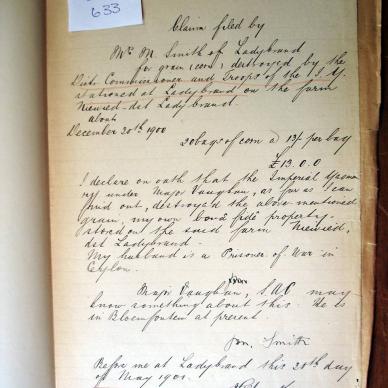 633
Claim filed by
Mrs M. Smith of Ladybrand
for grain (corn) destroyed by the
Distr. Commissioner and Troops of the I. Y.
stationed at Ladybrand on the farm
dst Ladybrand.
about
December 20th 1900
20 bags of corn @ 13/- per bag
£13.0.0
I declare on oath that the Imperial Yeoman
ry under Major Vaughan, as far as I can
find out, destroyed the above mentioned
grain, my own bonâ fide property.
stood on the said farm
dst Ladybrand.
My husband is a Prisoner of War in
Ceylon.
Major Vaughan, may
know something about this. He is
in Bloemfontein at present.
Smith
Before me at Ladybrand this 28th day
of May 1901.